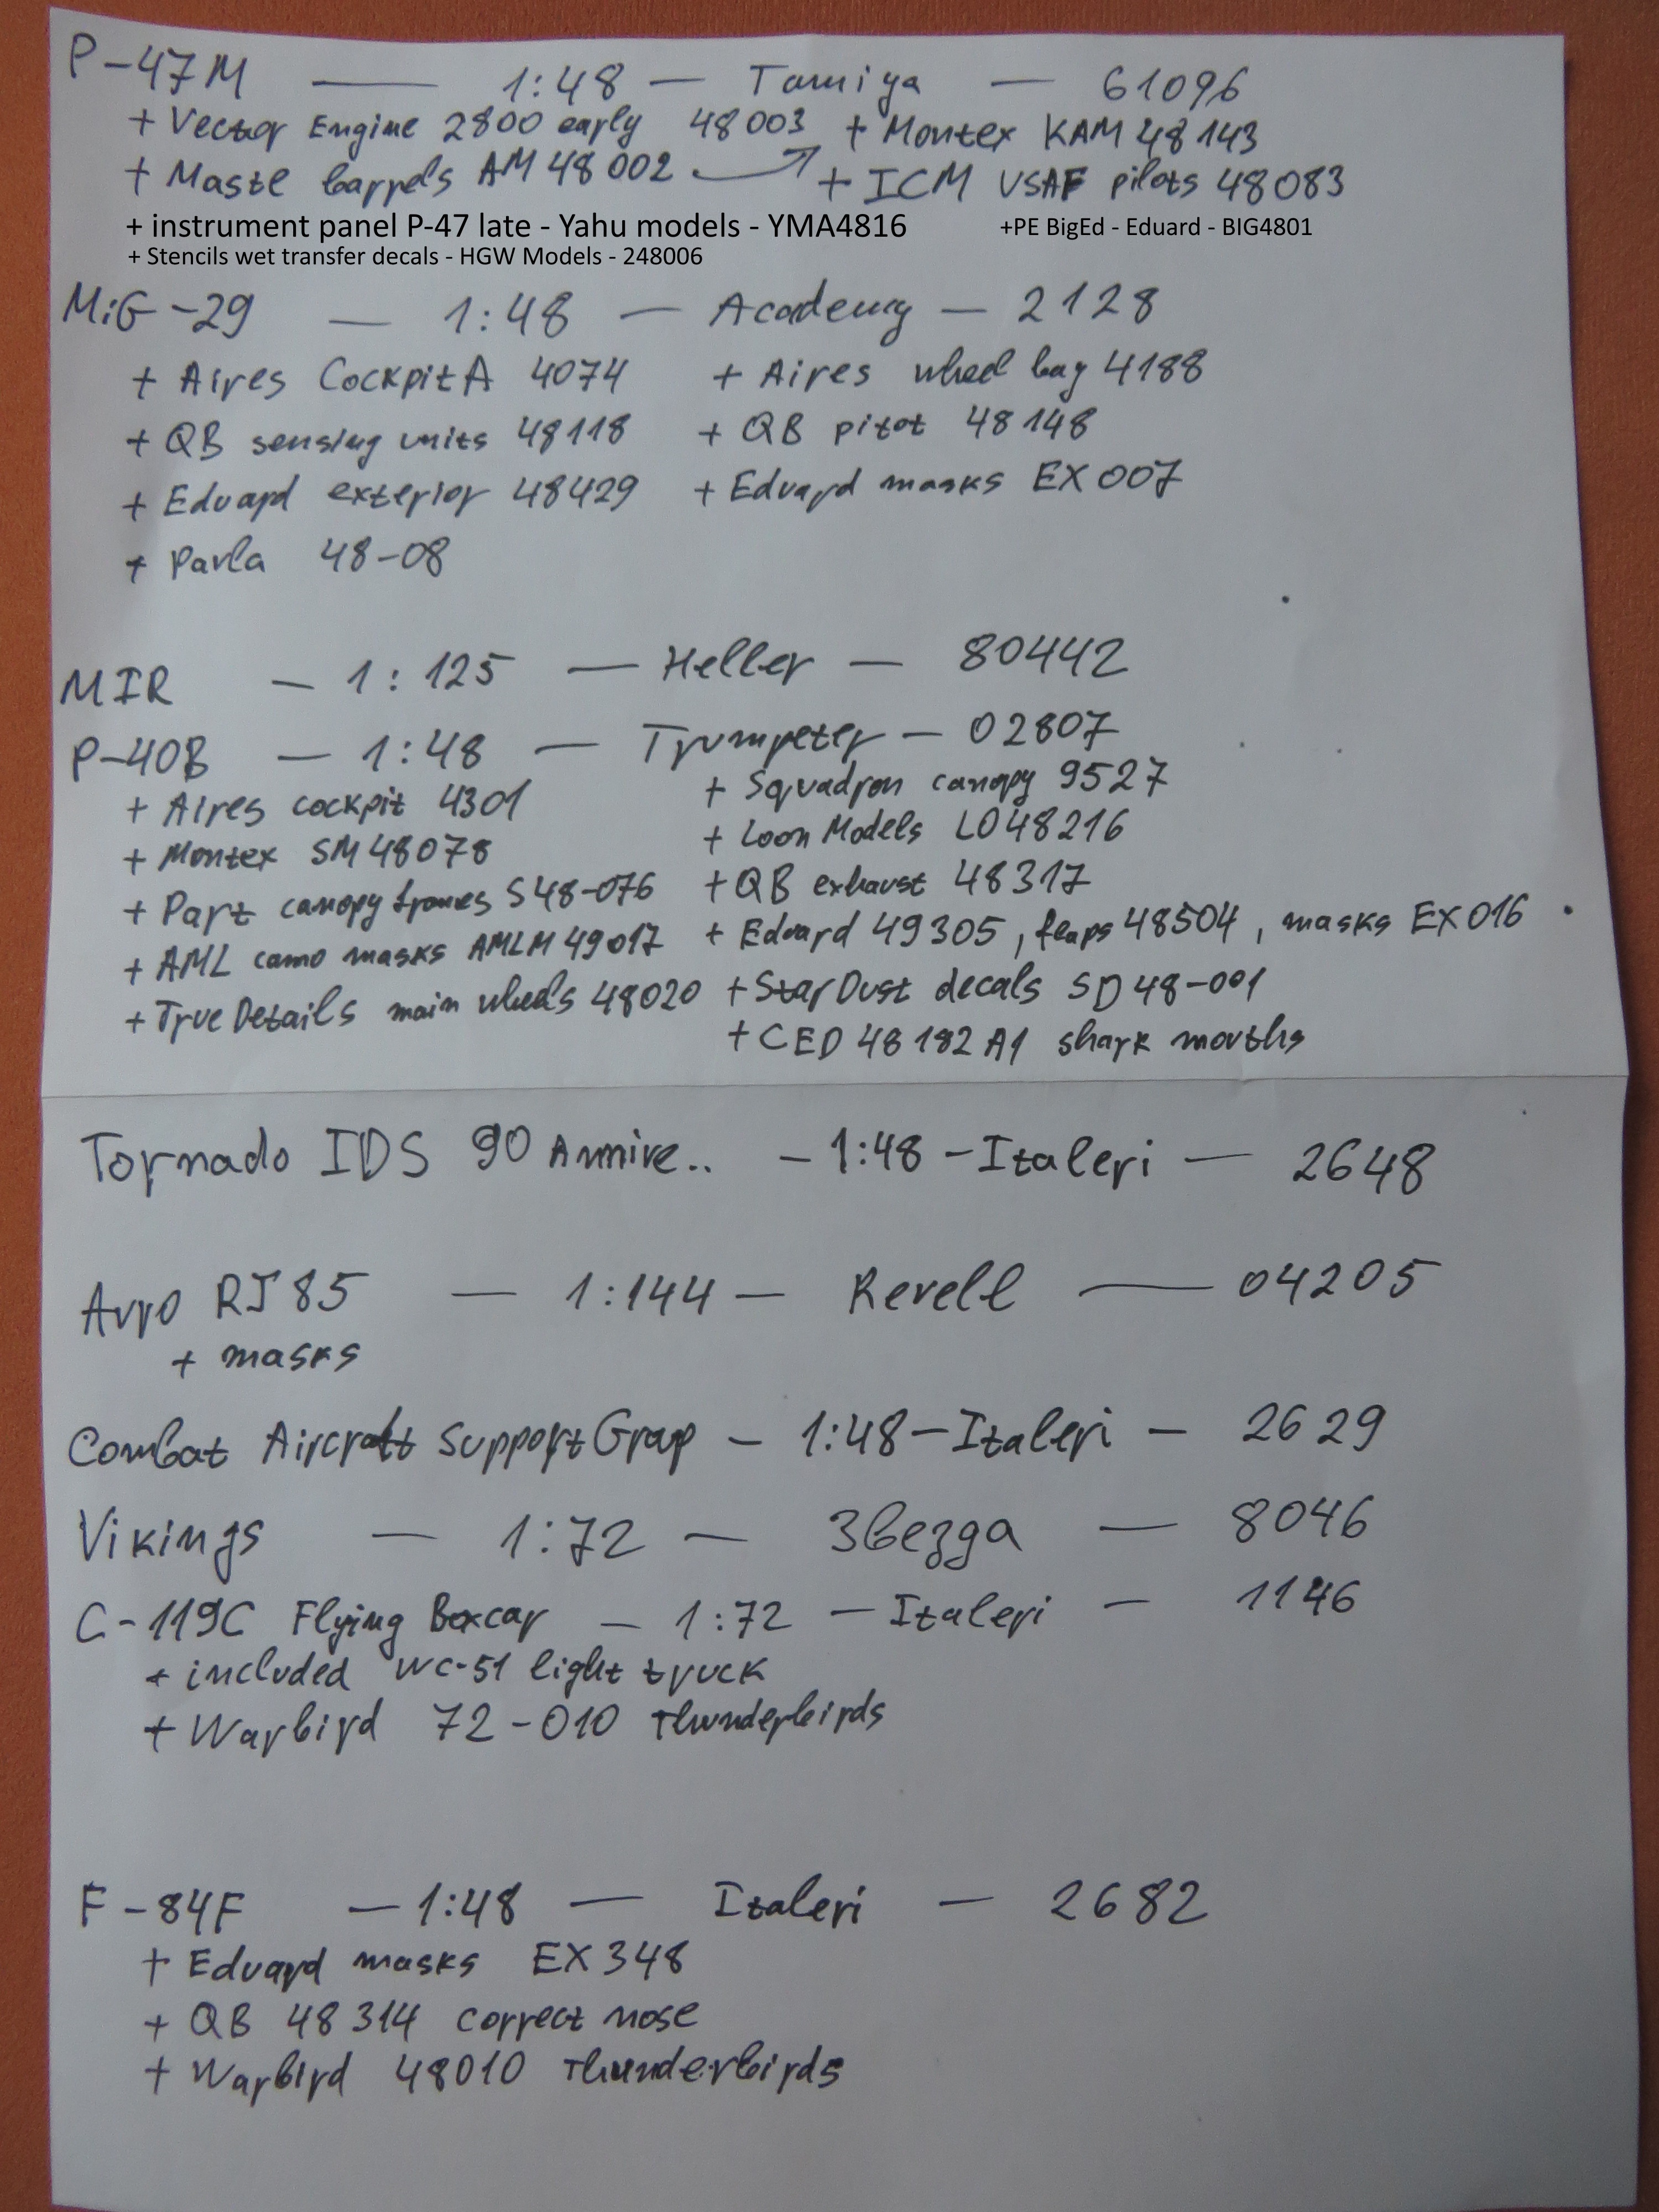 P-47M — 1:48 — Tamiya — 61096
+ Vector Engine 2800 early 48003 + Montex KAM 48143
+ Maste barrels AM 48 002 + ICM USAF pilots 48083
+ instrument panel P-47 late - Yahu models - YMA4816 +PE BigEd - Eduard - BIG4801
+ Stencils wet transfer decals - HGW Models - 248006
MiG-29 — 1:48 — Academy — 2128
+ Aires Cockpit A 4074 + Aires wheel bay 4188
+ QB sensing units 48118 + QB pitot 48148
+ Eduard exterior 48429 + Eduard masks EX 007
+ Pavla 48-08
MIR — 1:125 — Heller — 80442
P-40B — 1:48 — Trumpeter — 02807
+ Aires cockpit 4301 + Squadron canopy 9527
+ Montex SM48078 + Loon Models LO48216
+ Part canopy frames S48-076 + QB exhaust 48317
+ AML camo masks AMLM49017 + Eduard 49305, flaps 48504, masks EX016
+ True Details main wheels 48020 + StarDust decals SD48-001
+ CED 48182 A1 shark mouths
Tornado IDS 90 Annive.. — 1:48 — Italeri — 2648
Avro RJ85 — 1:144 — Revell — 04205
+ masks
Combat Aircraft Support Grap — 1:48 — Italeri — 2629
Vikings — 1:72 — Звезда — 8046
C-119C Flying Boxcar — 1:72 — Italeri — 1146
+ included WC-51 light truck
+ Warbird 72-010 Thunderbirds
F-84F — 1:48 — Italeri — 2682
+ Eduard masks EX348
+ QB 48314 correct nose
+ Warbird 48010 Thunderbirds